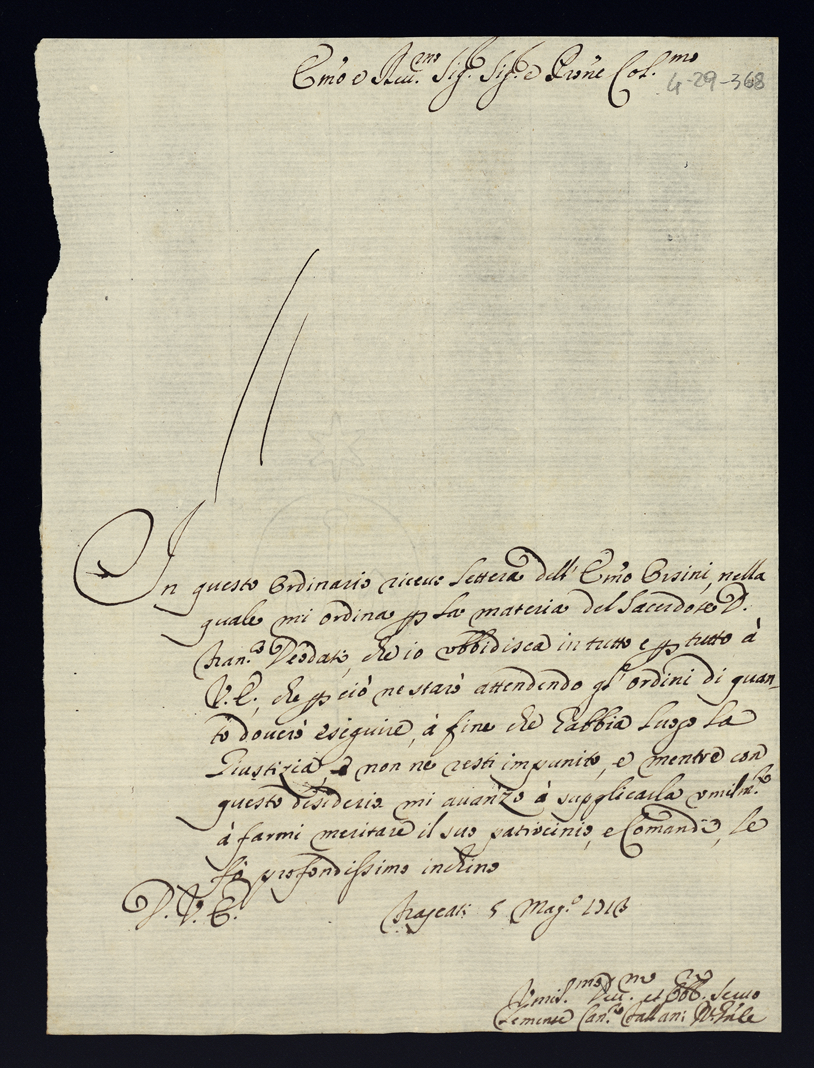 Em̃o e Reu.mo Sig.r Sig.r e Prõne Col.mo
4-29-368
In questo Ordinario riceuo lettera dell' Em̃o Orsini, nella
quale mi ordina p la materia del Sacerdote D.
Fran.co Deodati, che io ubbidisca in tutto e p tutto à
V. E., che p ciò ne starò attendendo gl' ordini di quan-
to douerò eseguire, à fine che habbia luogo la
Giustizia, e non ne resti impunito, e mentre con
questo desiderio mi auanzo à supplicarla umilm.te
à farmi meritare il suo patrocinio, e Comandi, le
fò profondissimo inchino
D. V. E.
Frascati 5 Mag.o 1713
Vmil.mo Deu.mo et Obb. Seruo
Clemente Can.co